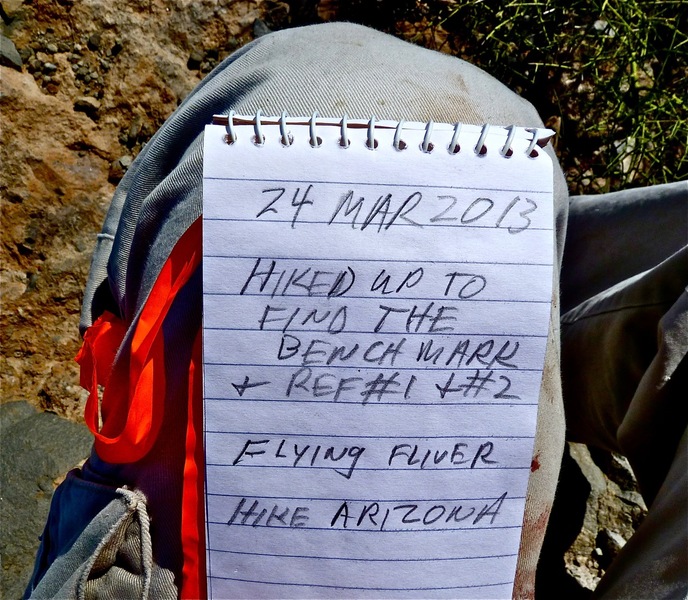 24 MAR 2013
HIKED UP TO
FIND THE
BENCH MARK
+ REF #1 + #2
FLYING FLIVER
HIKE ARIZONA